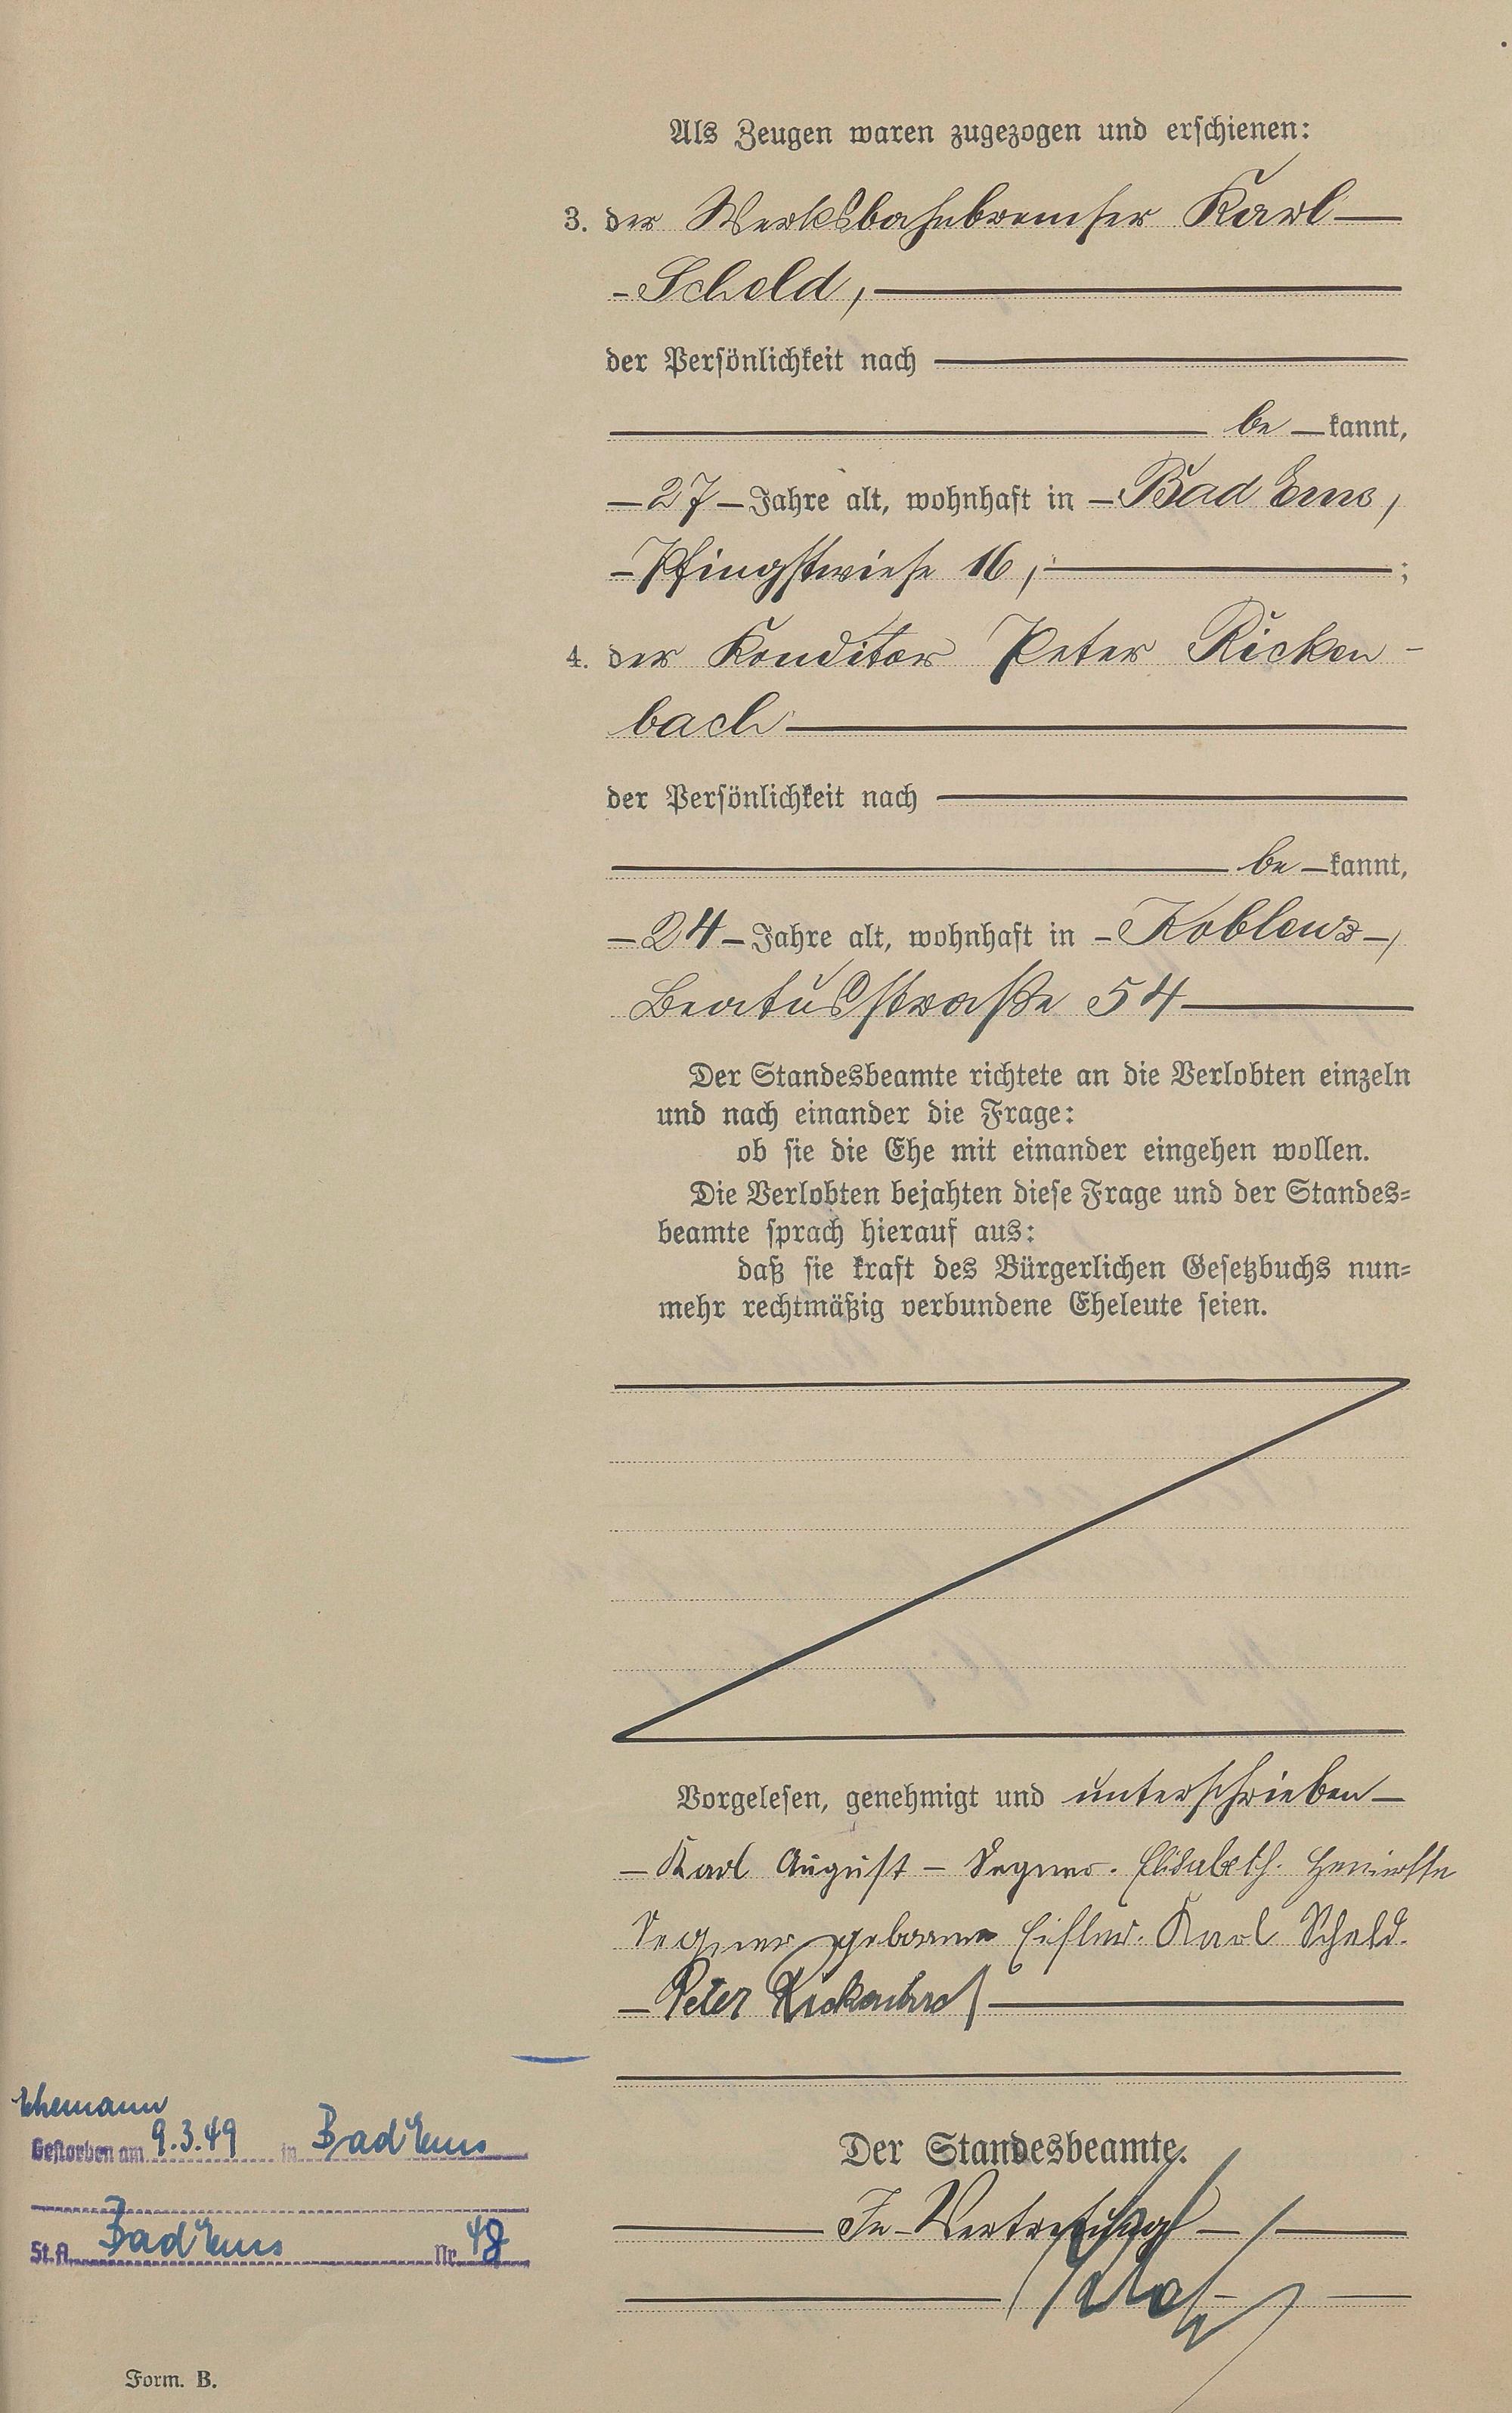 Als Zeugen waren zugezogen und erschienen:
3. der Werksbahnbremser Karl
Scheld,
der Persönlichkeit nach
be kannt,
27 Jahre alt, wohnhaft in Bad Ems,
Pfingstwiese 16, ;
4. der Konditor Peter Ricken-
bach
der Persönlichkeit nach
be kannt,
24 Jahre alt, wohnhaft in Koblenz,
Beatusstraße 54
Der Standesbeamte richtete an die Verlobten einzeln
und nach einander die Frage:
ob sie die Ehe mit einander eingehen wollen.
Die Verlobten bejahten diese Frage und der Standes=
beamte sprach hierauf aus:
daß sie kraft des Bürgerlichen Gesetzbuchs nun=
mehr rechtmäßig verbundene Eheleute seien.
Vorgelesen, genehmigt und unterschrieben
Karl August Elisabeth
geborene Karl Scheld.
Peter Rickenbach
Ehemann
Gestorben am 9.3.49 in Bad Ems
St. A. Bad Ems Nr. 48
Der Standesbeamte.
In Vertretung
Form. B.